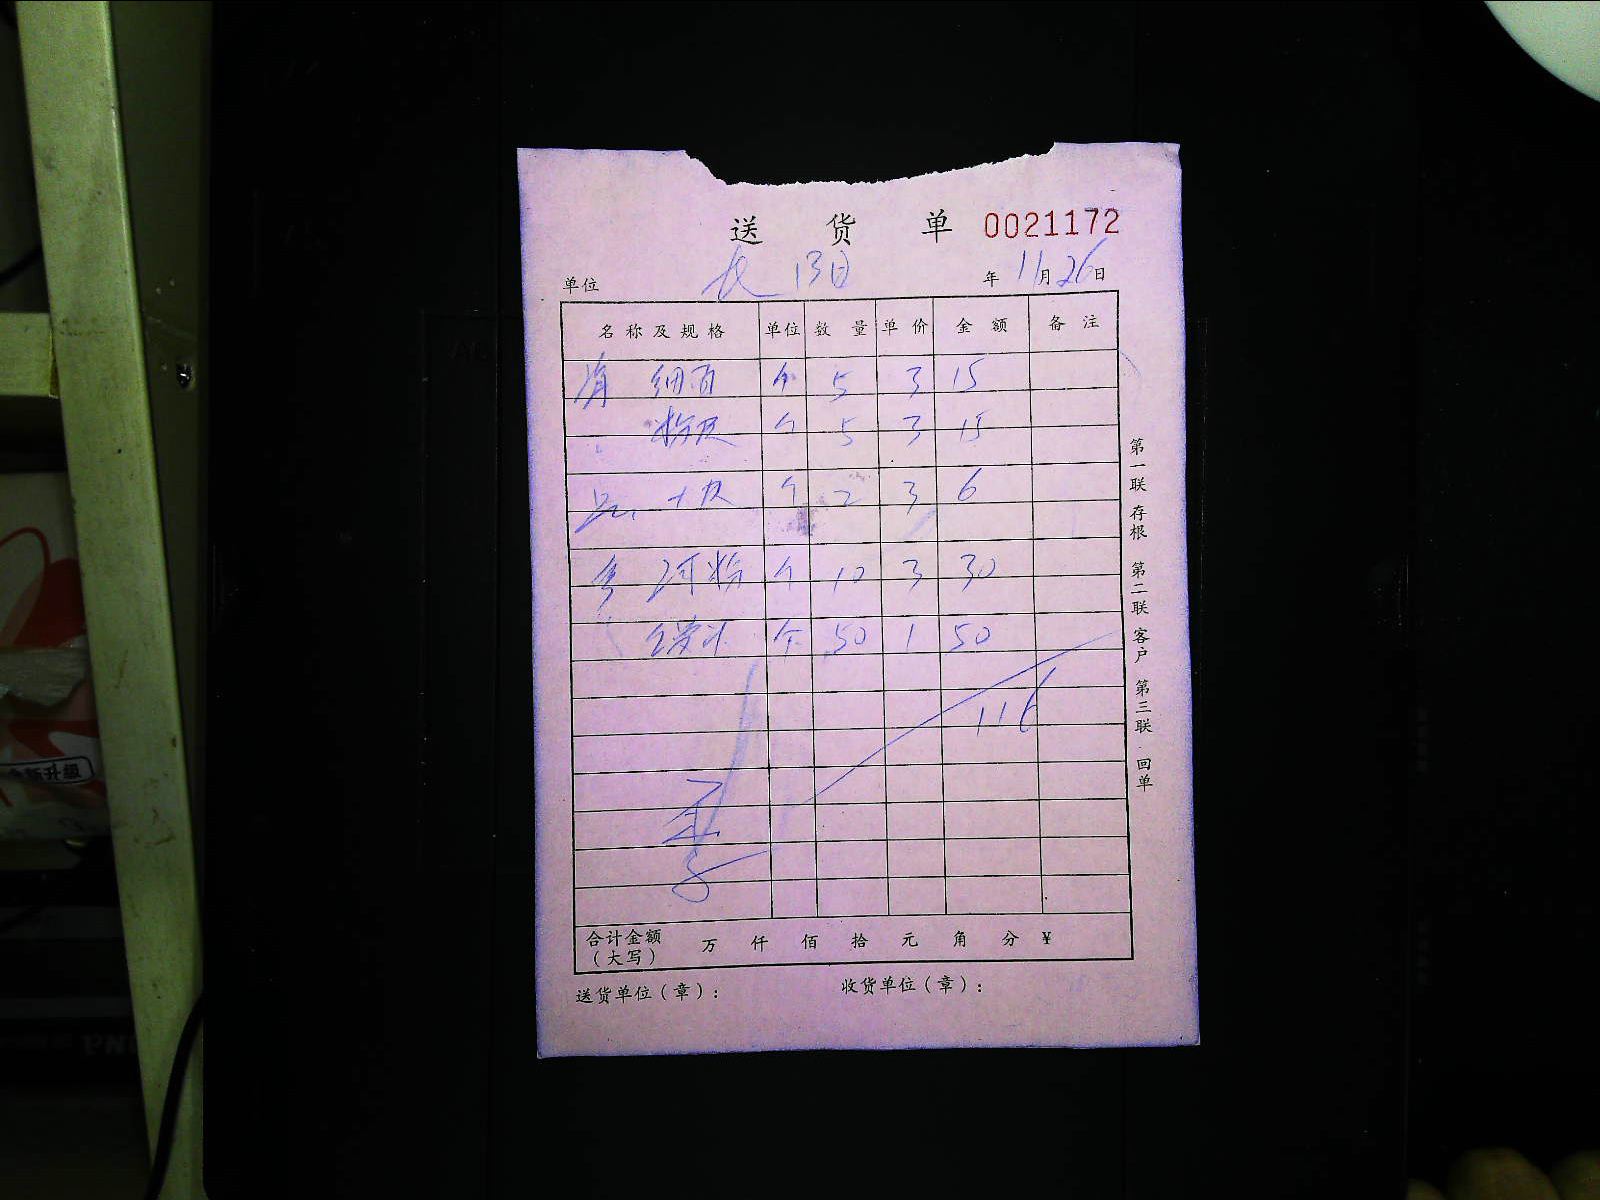 送货单 0021172
单位 年 11月26日
名称及规格 单位 数量 单价 金额 备注
细面 个 5 3 15
个 5 3 15
个 2 3 6
河粉 个 10 3 30
个 50 1 50
116
李
合计金额（大写） 万 仟 佰 拾 元 角 分 ¥
送货单位（章）： 收货单位（章）：
第一联 存根 第二联 客户 第三联 回单
新升級